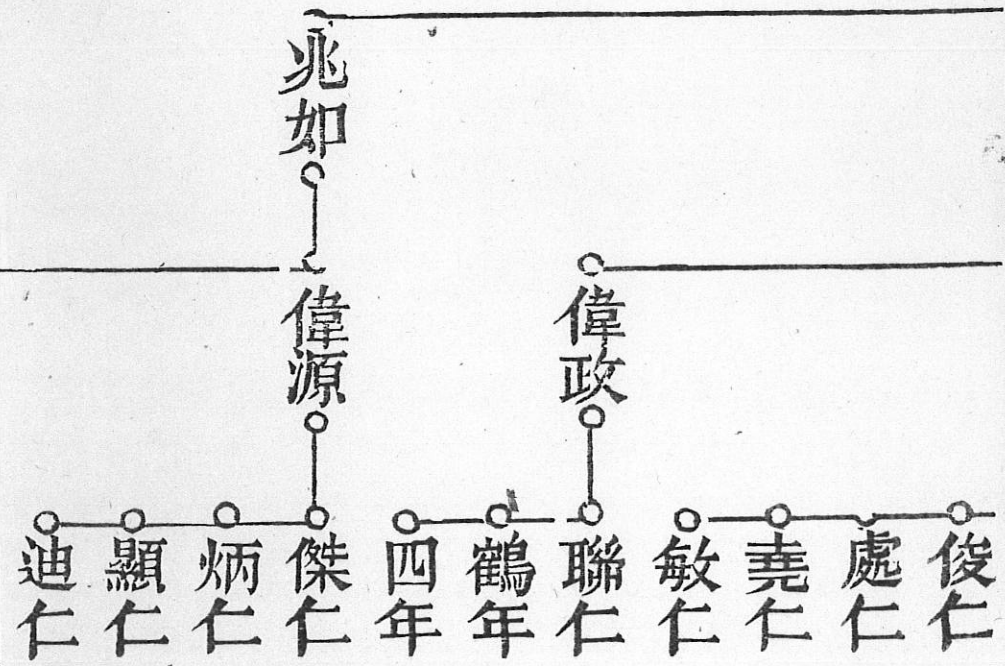 兆如
偉政
偉源
俊仁
處仁
堯仁
敏仁
聯仁
鶴年
四年
傑仁
炳仁
顯仁
迪仁